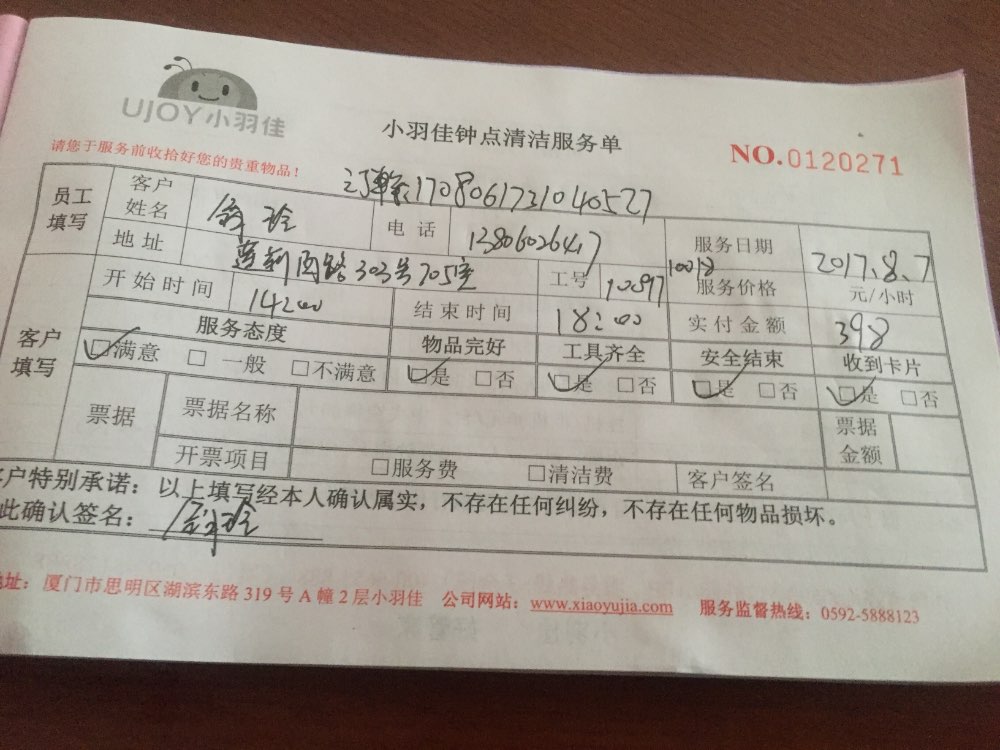 UJOY小羽佳
小羽佳钟点清洁服务单
NO.0120271
请您于服务前收拾好您的贵重物品!
1708061731040527
员工填写 客户姓名 电话 13806026417 服务日期 2017.8.7
地址 303号705室 工号 10897 10018 服务价格 元/小时
客户填写 开始时间 14:00 结束时间 18:00 实付金额 398
服务态度 物品完好 工具齐全 安全结束 收到卡片
☑满意 □一般 □不满意 ☑是 □否 ☑是 □否 ☑是 □否 ☑是 □否
票据 票据名称 票据金额
开票项目 □服务费 □清洁费 客户签名
客户特别承诺:以上填写经本人确认属实,不存在任何纠纷,不存在任何物品损坏。
此确认签名:
地址:厦门市思明区湖滨东路319号A幢2层小羽佳 公司网站:www.xiaoyujia.com 服务监督热线:0592-5888123